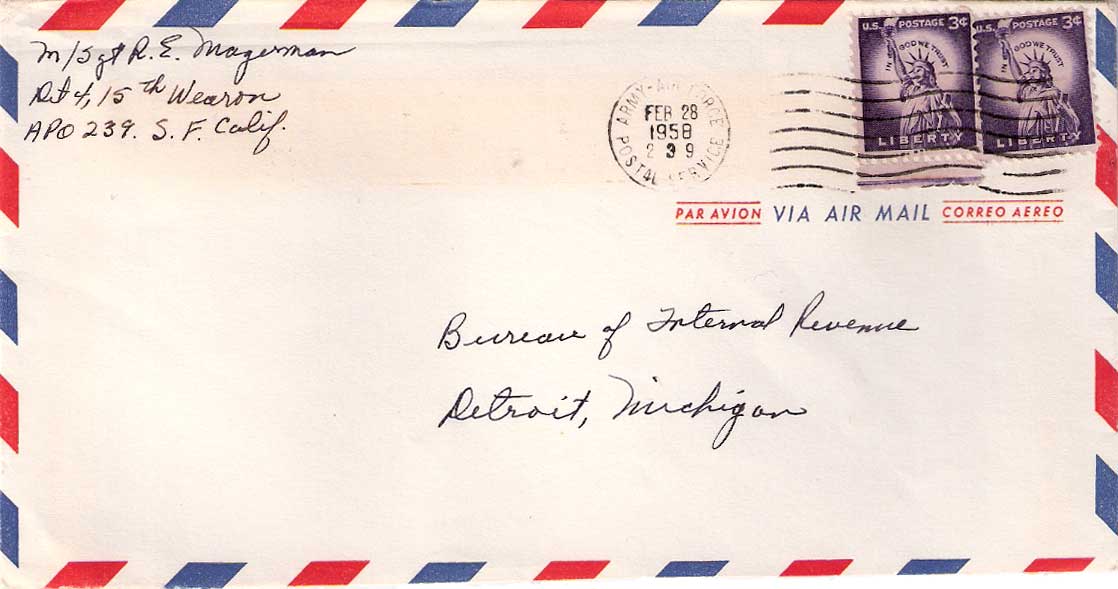 M/Sgt R. E. Magerman
Det 4, 15th Wearon
APO 239. S. F. Calif.
ARMY-AIR FORCE
FEB 28
1958
239
POSTAL SERVICE
U.S. POSTAGE 3¢
IN GOD WE TRUST
LIBERTY
U.S. POSTAGE 3¢
IN GOD WE TRUST
LIBERTY
PAR AVION VIA AIR MAIL CORREO AEREO
Bureau of Internal Revenue
Detroit, Michigan